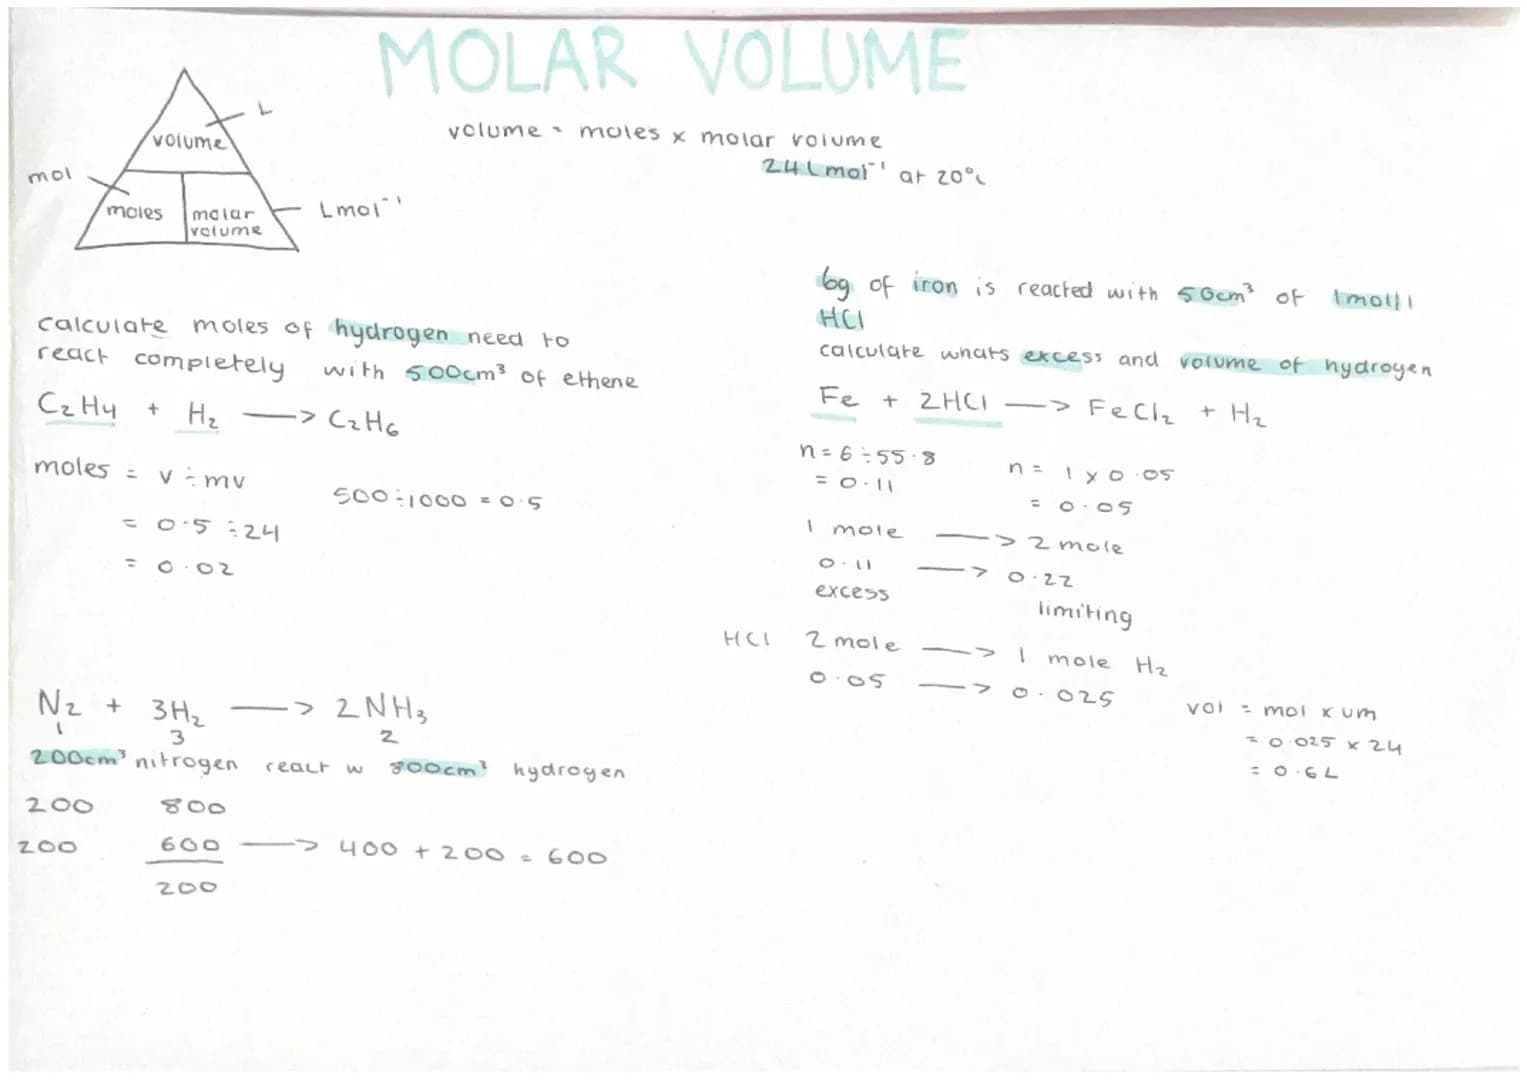 MOLAR VOLUME
L
volume
mol
moles
molar
volume
Lmol⁻¹
volume = moles x molar volume
24 Lmol⁻¹ at 20°c
calculate moles of hydrogen need to
react completely with 500cm³ of ethene
C₂H₄ + H₂ —> C₂H₆
moles = v ÷ mv
500÷1000 = 0.5
= 0.5 ÷ 24
= 0.02
N₂ + 3H₂ —> 2NH₃
1 3 2
200cm³ nitrogen react w 800cm³ hydrogen
200 800
200 600 —> 400 + 200 = 600
200
6g of iron is reacted with 50cm³ of 1mol/l
HCl
calculate whats excess and volume of hydrogen
Fe + 2HCl —> FeCl₂ + H₂
n = 6 ÷ 55.8
= 0.11
n = 1 x 0.05
= 0.05
1 mole —> 2 mole
0.11 —> 0.22
excess
limiting
HCl 2 mole —> 1 mole H₂
0.05 —> 0.025
vol = mol x vm
= 0.025 x 24
= 0.6L